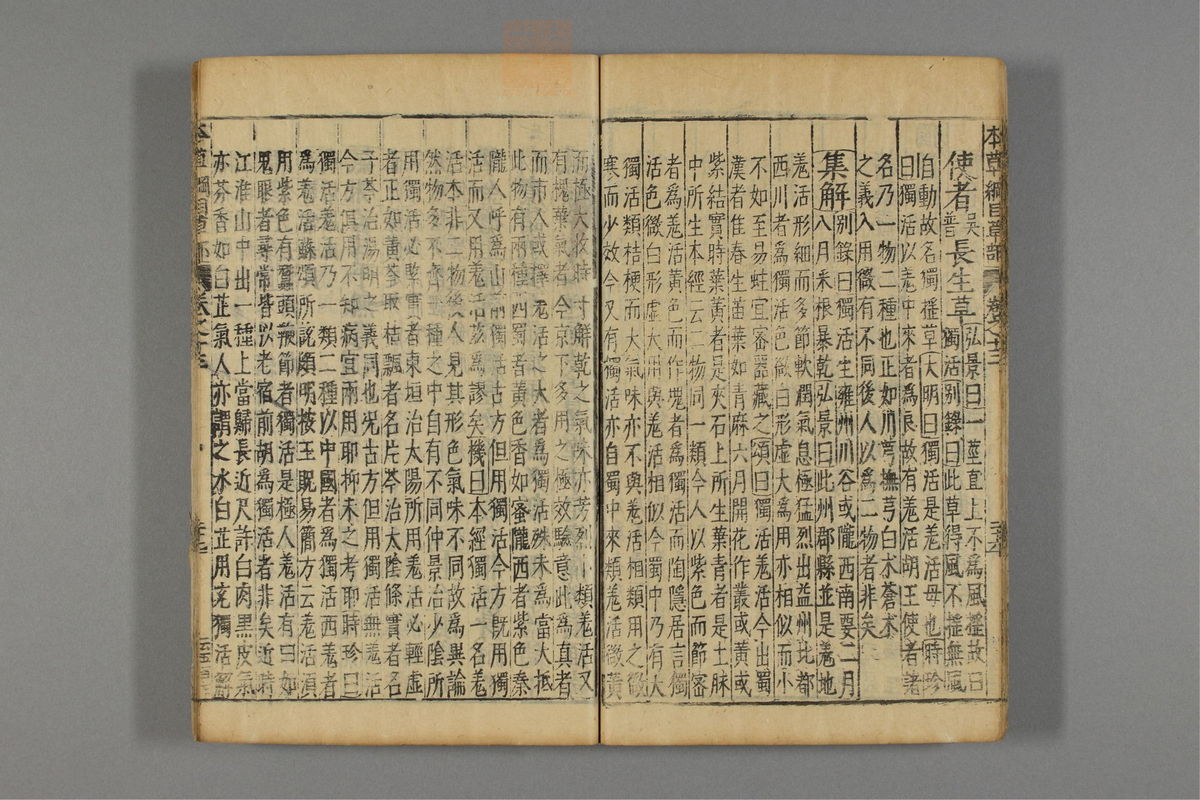 本草綱目草部 卷之十三
使者吳普長生草弘景曰一莖直上不為風搖故曰
獨活别錄曰此草得風不搖無風
自動故名獨搖草大明曰獨活是羌活母也時珍
曰獨活以羌中來者為良故有羌活胡王使者諸
名乃一物二種也正如川芎撫芎白朮蒼朮
之義入用微有不同後人以為二物者非矣
集解别錄曰獨活生雍州川谷或隴西南安二月
八月采根暴乾弘景曰此州郡縣並是羌地
羌活形細而多節軟潤氣息極猛烈出益州北都
西川者為獨活色微白形虛大為用亦相似而小
不如至易蛀宜密器藏之頌曰獨活羌活今出蜀
漢者佳春生苗葉如青麻六月開花作叢或黃或
紫結實時葉黃者是夾石上所生葉青者是土脉
中所生本經云二物同一類今人以紫色而節密
者為羌活黃色而作塊者為獨活而陶隱居言獨
活色微白形虛大用與羌活相似今蜀中乃有大
獨活類桔梗而大氣味亦不與羌活相類用之微
寒而少效今又有獨活亦自蜀中來類羌活微黃
而極大收時寸解乾之氣味亦芳烈小類羌活又
有槐葉氣者今京下多用之極效驗意此為真者
而市人或擇羌活之大者為獨活殊未為當大抵
此物有兩種西蜀者黃色香如蜜隴西者紫色秦
隴人呼為山前獨活古方但用獨活今方既用獨
活而又用羌活兹為謬矣機曰本經獨活一名羌
活本非二物後人見其形色氣味不同故為異論
然物多不齊一種之中自有不同仲景治少陰所
用獨活必緊實者東垣治太陽所用羌活必輕虛
者正如黃芩取枯飄者名片芩治太陰條實者名
子芩治陽明之義同也况古方但用獨活無羌活
今方俱用不知病宜兩用耶抑未之考耶時珍曰
獨活羌活乃一類二種以中國者為獨活西羌者
為羌活蘇頌所說頗明按王貺易簡方云羌活須
用紫色有蠶頭鞭節者獨活是極大羌活有臼如
鬼眼者尋常皆以老宿前胡為獨活者非矣近時
江淮山中出一種上當歸長近尺許白肉黑皮氣
亦芬香如白芷氣人亦謂之水白芷用充獨活解
本草綱目草部 卷之十三